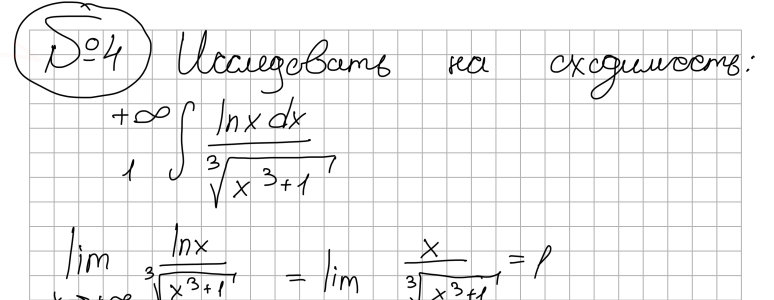 №4 Исследовать на сходимость:
+∞ ∫ 1 lnx dx / ∛(x³+1)
lim x→+∞ lnx / ∛(x³+1) = lim x / ∛(x³+1) = 1